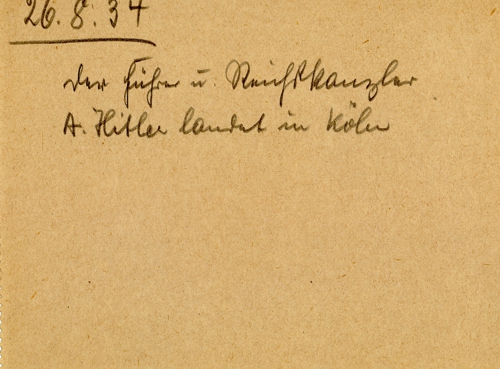 26.8.34
Der Führer u. Reichskanzler
A. Hitler landet in Köln